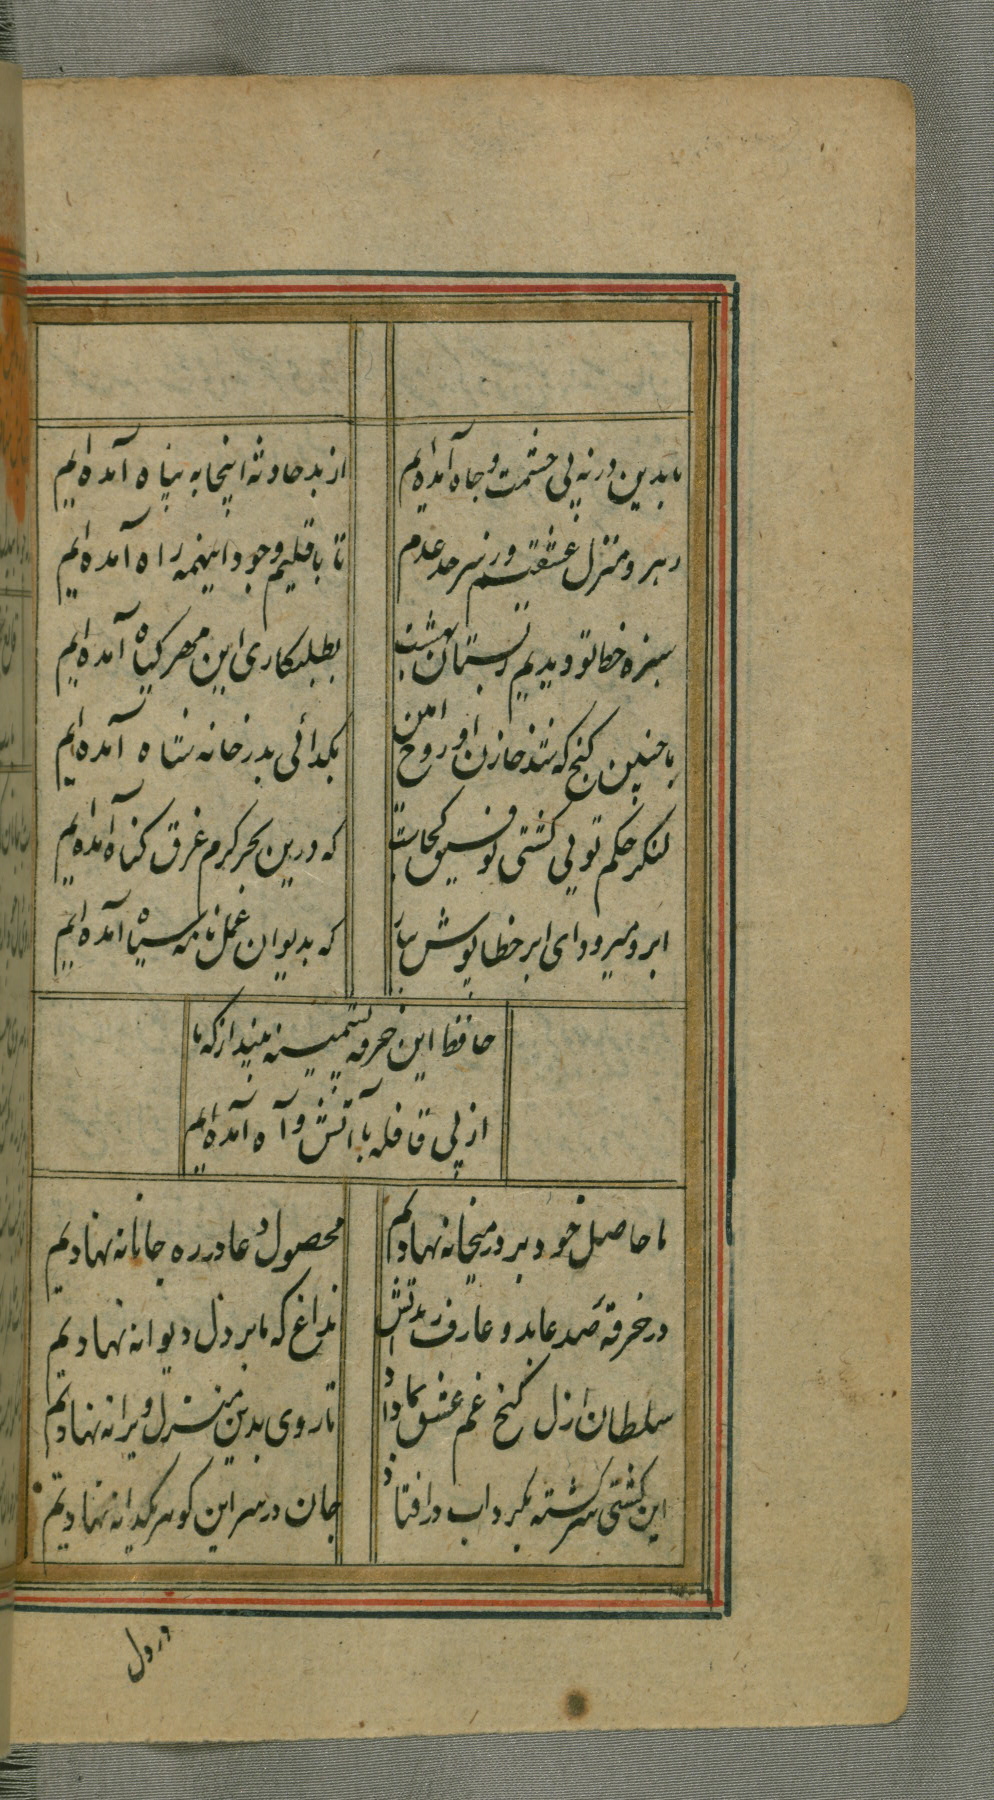 ما بدین در نه پی حشمت و جاه آمده‌ایم
از بد حادثه اینجا به پناه آمده‌ایم
رهرو منزل عشقیم و ز سرحد عدم
تا باقلیم وجود اینهمه راه آمده‌ایم
سبزه خط تو دیدیم و ز بستان بهشت
بطلبکاری این مهر گیاه آمده‌ایم
با چنین گنج که شد خازن او روح امین
بگدائی بدر خانه شاه آمده‌ایم
لنگر حکم تو پی کشتی توفیق کجاست
که درین بحر کرم غرق گناه آمده‌ایم
ابرو میرود ای ابر خطا پوش ببار
که بدیوان عمل نامه سیاه آمده‌ایم
حافظ این خرقه پشمینه بینداز که ما
از پی قافله با آتش و آه آمده‌ایم
ما حاصل خود بر در میخانه نهادیم
محصول دعا در ره جانانه نهادیم
در خرقه صد عابد و عارف زند آتش
این داغ که ما بر دل دیوانه نهادیم
سلطان ازل گنج غم عشق بما داد
تا روی بدین منزل ویرانه نهادیم
این کشتی سرگشته بگرداب در افتاد
جان در سر این گوهر یکدانه نهادیم
در دل